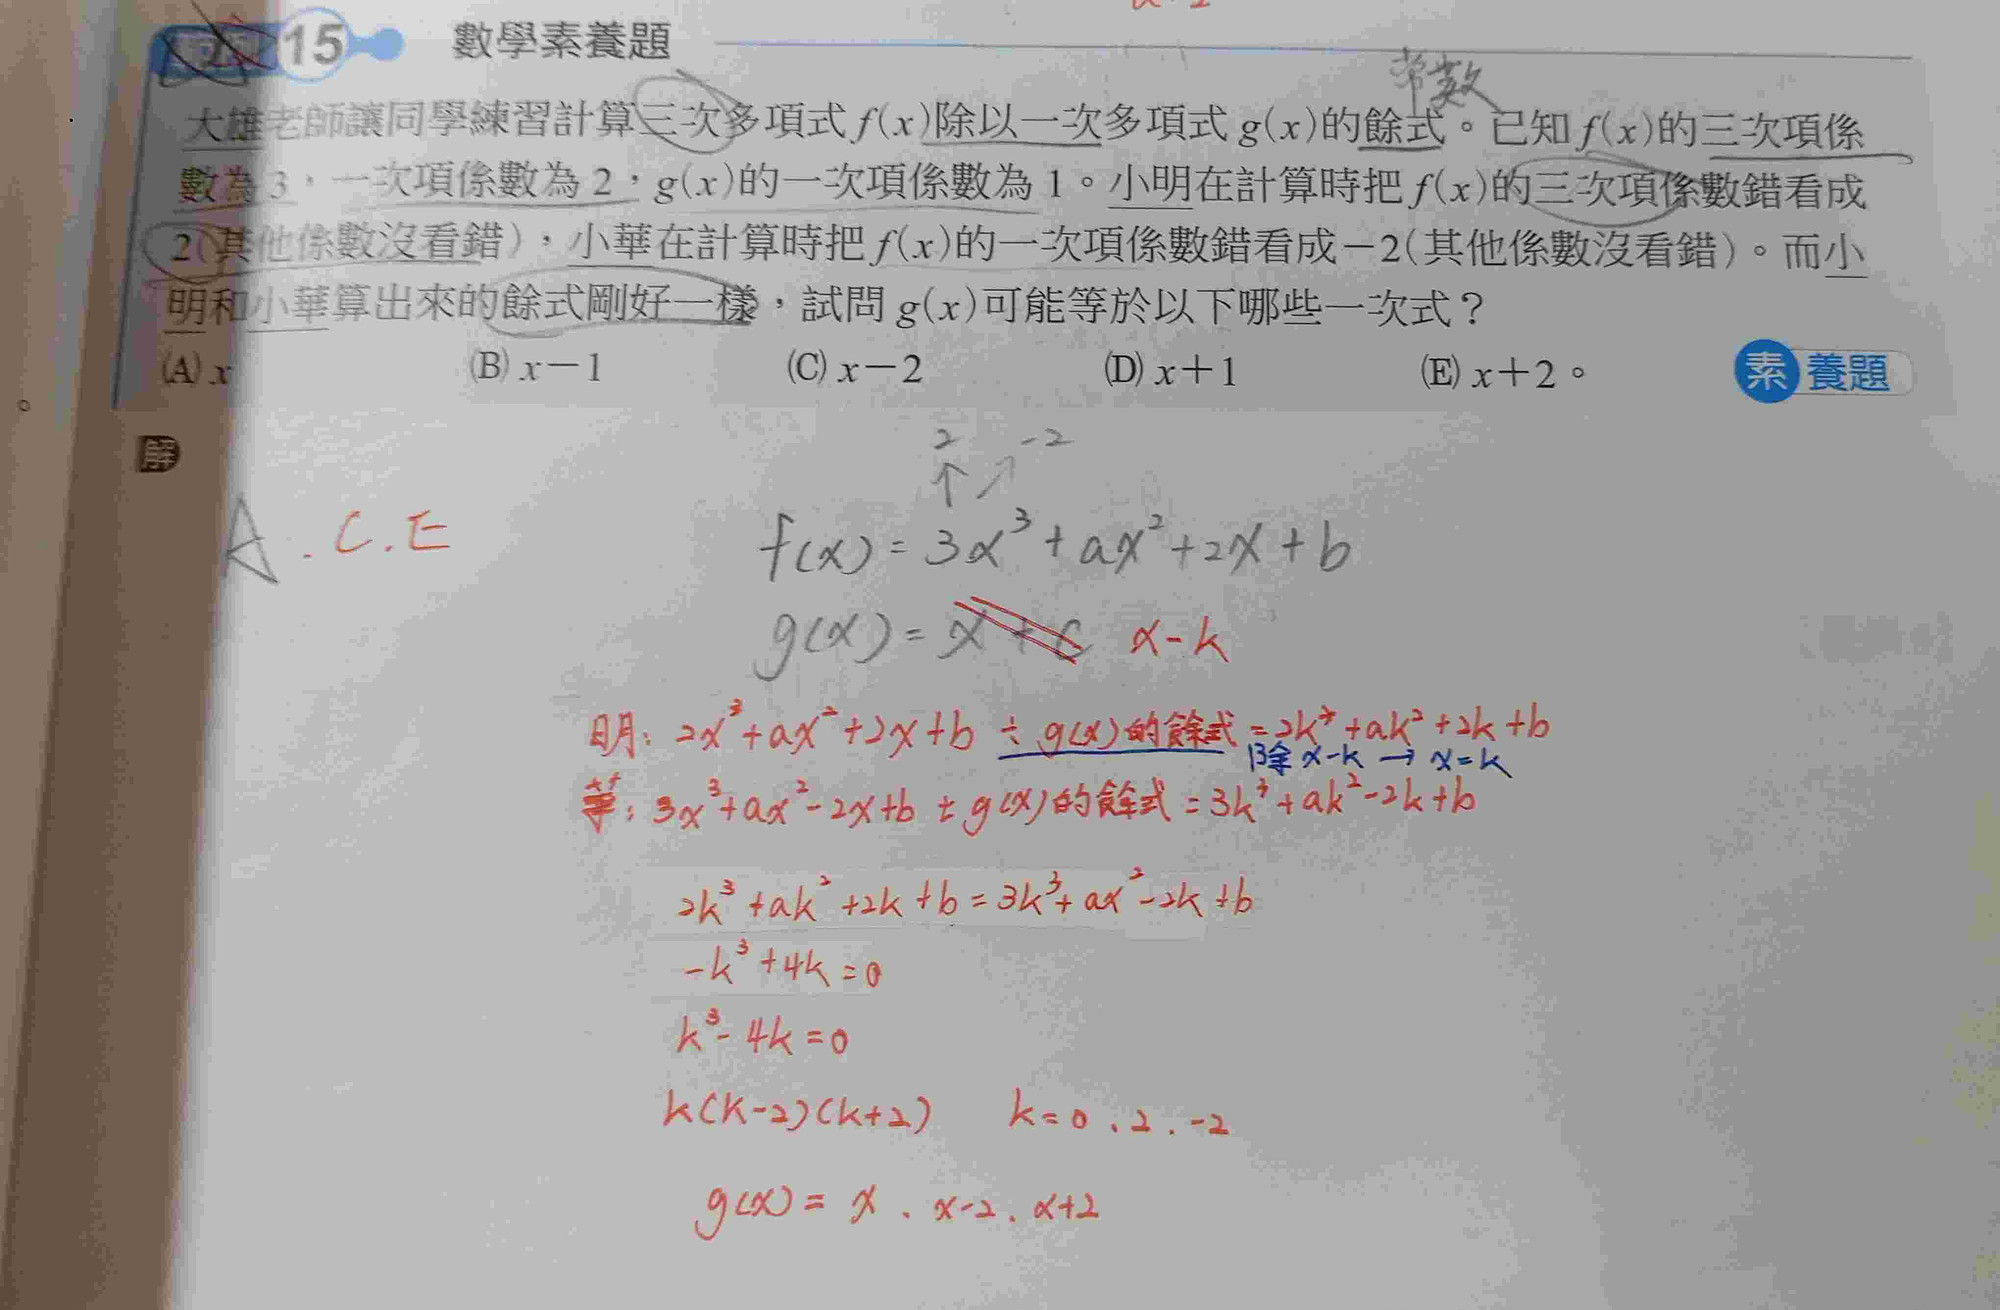 15 數學素養題
常數
大雄老師讓同學練習計算三次多項式 f(x)除以一次多項式 g(x)的餘式。已知 f(x)的三次項係
數為 3,一次項係數為 2,g(x)的一次項係數為 1。小明在計算時把 f(x)的三次項係數錯看成
2(其他係數沒看錯),小華在計算時把 f(x)的一次項係數錯看成-2(其他係數沒看錯)。而小
明和小華算出來的餘式剛好一樣,試問 g(x)可能等於以下哪些一次式?
(A) x (B) x-1 (C) x-2 (D) x+1 (E) x+2。 素養題
解
2 -2
↑ ↗
A . C . E
f(x) = 3x³ + ax² + 2x + b
g(x) = x + c x - k
明: 2x³ + ax² + 2x + b ÷ g(x)的餘式 = 2k³ + ak² + 2k + b
除 x-k → x = k
華: 3x³ + ax² - 2x + b ÷ g(x)的餘式 = 3k³ + ak² - 2k + b
2k³ + ak² + 2k + b = 3k³ + ax² - 2k + b
-k³ + 4k = 0
k³ - 4k = 0
k(k-2)(k+2) k = 0 、2 . -2
g(x) = x 、x-2 、x+2